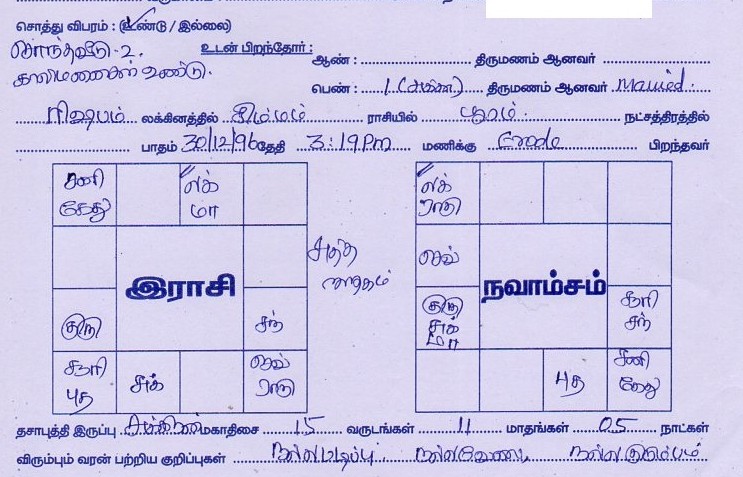 சொத்து விபரம் : (உண்டு / இல்லை)
சொந்தவீடு - 2.
காலிமனைகள் உண்டு.
உடன் பிறந்தோர் : ஆண் : திருமணம் ஆனவர்
பெண் : 1. (அக்கா) திருமணம் ஆனவர் Married.
ரிஷபம் லக்கினத்தில் சிம்மம் ராசியில் பூரம். நட்சத்திரத்தில்
பாதம் 30/12/96 தேதி 3:19 P.m மணிக்கு Erode பிறந்தவர்
சனி கேது
லக் மா
குரு
சந்
சூரி புத
சுக்
செவ் ராகு
இராசி
சுத்த ஜாதகம்
லக் ராகு
செவ்
குரு சுக் மா
சூரி சந்
புத
சனி கேது
நவாம்சம்
தசாபுத்தி இருப்பு சுக்கிரன் மகாதிசை 15 வருடங்கள் 11 மாதங்கள் 05 நாட்கள்
விரும்பும் வரன் பற்றிய குறிப்புகள் நல்ல படிப்பு, நல்ல வேலை, நல்ல குடும்பம்